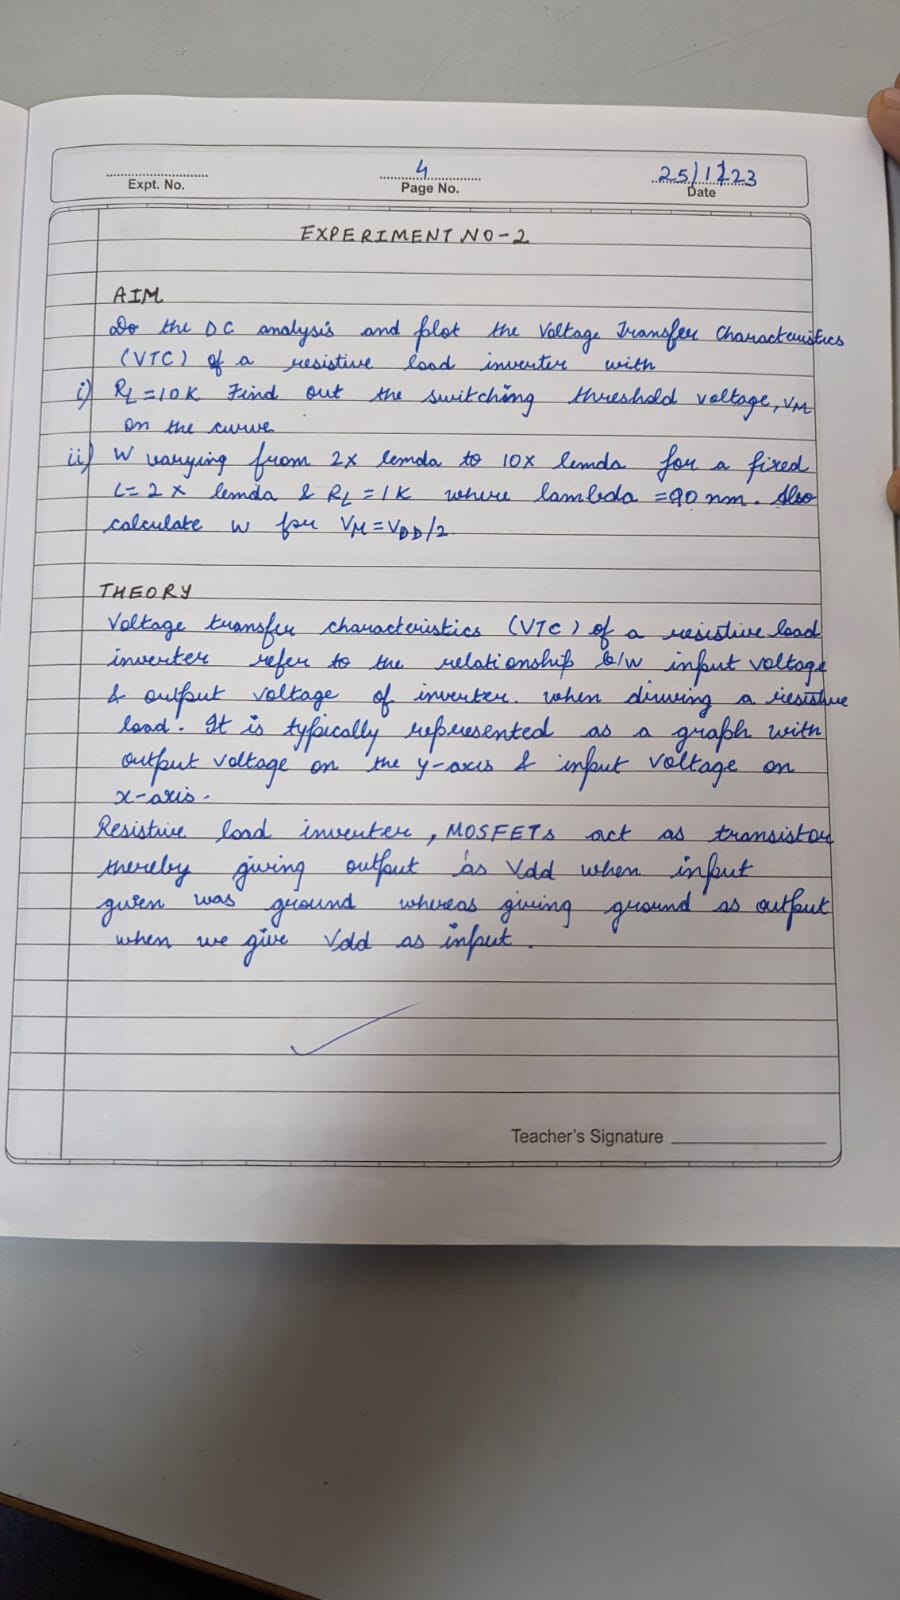 4
25/1/23
Expt. No.
Page No.
Date
EXPERIMENT NO-2
AIM
Do the DC analysis and plot the Voltage Transfer Characteristics
(VTC) of a resistive load inverter with
i) RL=10K Find out the switching threshold voltage, VM
on the curve
ii) W varying from 2x lemda to 10x lemda for a fixed
L=2x lemda & RL=1K where lambda =90 nm. Also
calculate W for VM=VDD/2
THEORY
Voltage transfer characteristics (VTC) of a resistive load
inverter refer to the relationship b/w input voltage
& output voltage of inverter. when driving a resistive
load. It is typically represented as a graph with
output voltage on the y-axis & input voltage on
x-axis.
Resistive load inverter, MOSFETs act as transistor
thereby giving output as Vdd when input
given was ground whereas giving ground as output
when we give Vdd as input.
Teacher's Signature